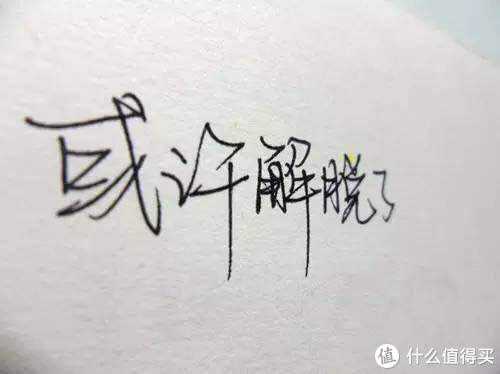 或许解脱了
值 什么值得买